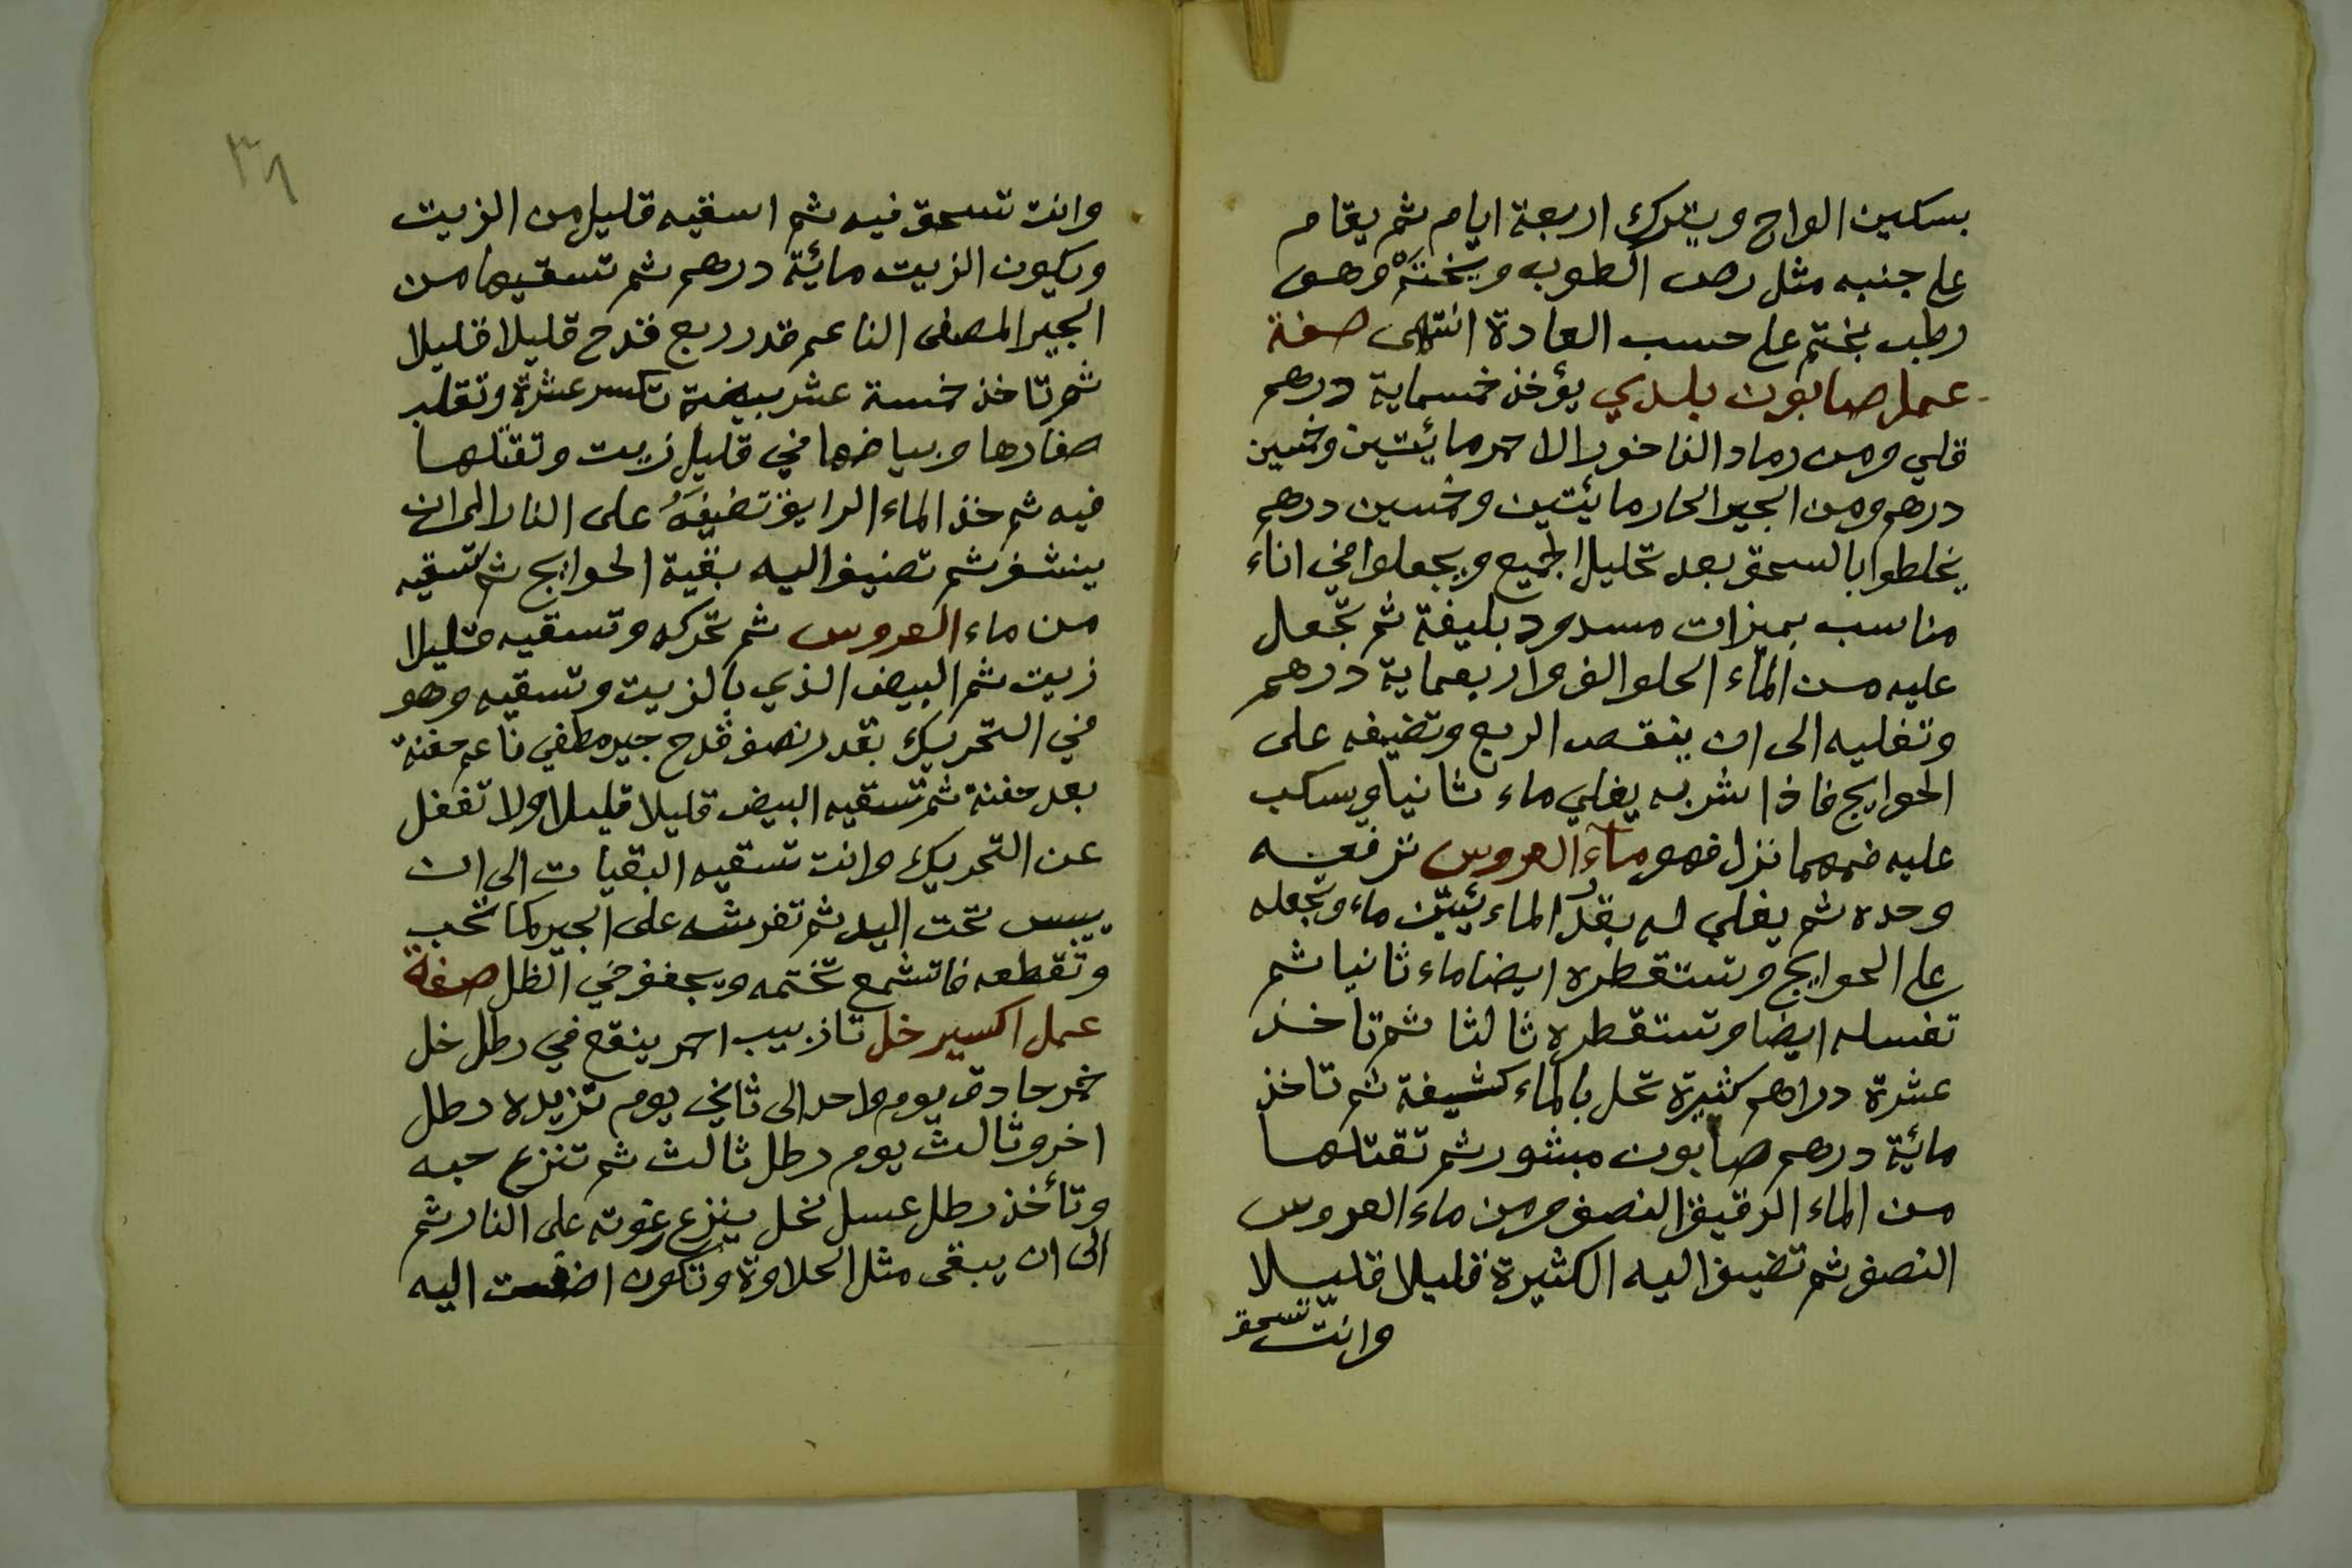 بسكين الواح ويترك اربعة ايام ثم يقام
على جنبه مثل رص الطوب ويختم وهو
رطب بختم على حسب العادة انتهى صفة
عمل صابون بلدي يؤخذ خمسماية درهم
قلي ومن رماد الفاخورا الاحمر مائيتين وخمسين
درهم ومن الجير الحار مائيتين وخمسين درهم
يخلطوا بالسحق بعد تحليل الجميع ويجعلوا في اناء
مناسب بميزات مسدود بليفة ثم تجعل
عليه من الماء الحلو الف واربعماية درهم
وتغليه الى ان ينقص الربع وتضيفه على
الحوايج فاذا شربه يغلي ماء ثانيا ويسكب
عليه فمهما نزل فهو ماء العروس ترفعه
وحده ثم يغلي له بقدر الماء ماء وتجعله
على الحوايج وتستقطره ايضا ماء ثانيا ثم
تغسله ايضا وتستقطره ثالثا ثم تاخذ
عشرة دراهم كثيرة تحل بالماء كثيفة ثم تاخذ
مائية درهم صابون مبشور ثم تقتلها
من الماء الرقيق النصف ومن ماء العروس
النصف ثم تضيف اليه الكثيرة قليلا قليلا
وانت تسحق
٣٨
وانت تسحق فيه ثم اسقيه قليل من الزيت
ويكون الزيت مائية درهم ثم تسقيها من
الجير المصفى الناعم قدر ربع قدح قليلا قليلا
ثم تاخذ خمسة عشر بيضة تكسر عشرة وتقلب
صفارها وبياضها في قليل زيت وتقتلها
فيه ثم خذ الماء الرايق تضيفه على النار الى ان
ينشف ثم تضيف اليه بقية الحوايج ثم تسقيه
من ماء العروس ثم تحركه وتسقيه قليلا
زيت ثم البيض الذي بالزيت وتسقيه وهو
في التحريك بقدر نصف قدح جير مطفي ناعم حفنة
بعد حفنة ثم تسقيه البيض قليلا قليلا ولا تغفل
عن التحريك وانت تسقيه البقيات الى ان
ييبس تحت اليد ثم تفرشه على الجير كما تحب
وتقطعه فاتشمع تختمه ويجفف في الظل صفة
عمل اكسير خل تاز بيب احمر ينقع في رطل خل
خمر حادق يوم واحد الى ثاني يوم تزيده رطل
اخر وثالث يوم رطل ثالث ثم تنزع حبه
وتأخذ رطل عسل نحل ينزع رغوته على النار ثم
الى ان يبقى مثل الحلاوة وتكون اضفت اليه